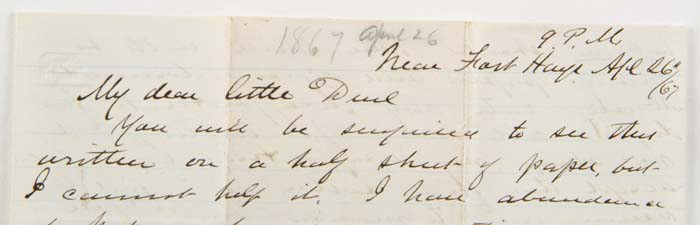 1867 April 26
9 P.M
Near Fort Hays Apl 26th
/67
My dear little
You will be surprised to see this
written on a half sheet of paper, but
I cannot help it. I have abundance